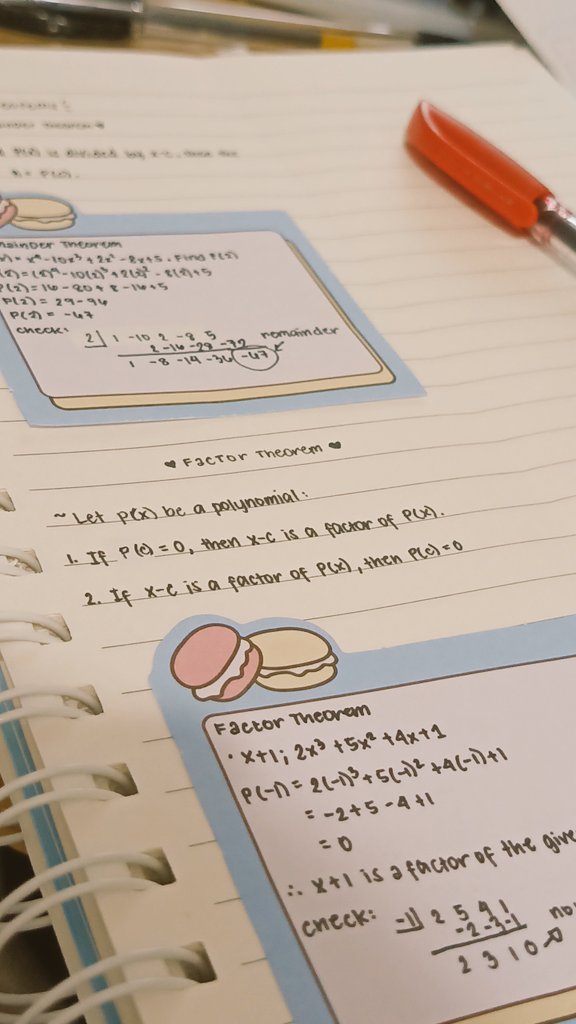 P(x) is divided by x-c, then the
R = P(c).
mainder Theorem
= x⁴-10x³+2x²-8x+5. Find P(2)
(2)=(2)⁴-10(2)³+2(2)²-8(2)+5
P(2)=16-80+8-16+5
P(2)=29-96
P(2)=-67
check: 2| 1 -10 2 -8 5 remainder
2 -16 -28 -72
1 -8 -14 -36 -67
♥ Factor Theorem ♥
~ Let P(x) be a polynomial:
1. If P(c)=0, then x-c is a factor of P(x).
2. If x-c is a factor of P(x), then P(c)=0
Factor Theorem
• x+1; 2x³+5x²+4x+1
P(-1)=2(-1)³+5(-1)²+4(-1)+1
= -2+5-4+1
= 0
∴ x+1 is a factor of the give
check: -1| 2 5 4 1
-2 -3 -1 no
2 3 1 0